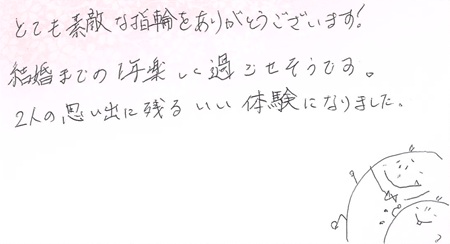 とても素敵な指輪をありがとうございます!
結婚までの1年楽しく過ごせそうです。
2人の思い出に残るいい体験になりました。